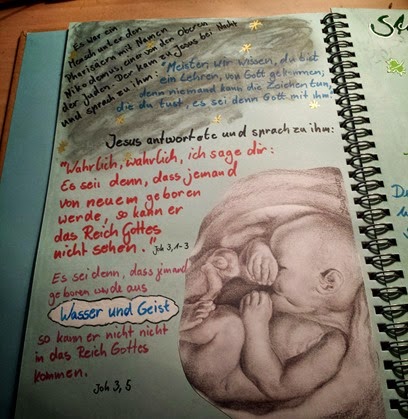 Es war ein
Mensch unter den
Pharisäern mit Namen
Nikodemus, einer von den Oberen
der Juden. Der kam zu Jesus bei Nacht
und sprach zu ihm:
"Meister, wir wissen, du bist
ein Lehrer, von Gott gekommen;
denn niemand kann die Zeichen tun,
die du tust, es sei denn Gott mit ihm."
Jesus antwortete und sprach zu ihm:
"Wahrlich, wahrlich, ich sage dir:
Es sei denn, dass jemand
von neuem geboren
werde, so kann er
das Reich Gottes
nicht sehen."
Joh 3,1-3
Es sei denn, dass jemand
geboren werde aus
Wasser und Geist
so kann er nicht nicht
in das Reich Gottes
kommen.
Joh 3,5